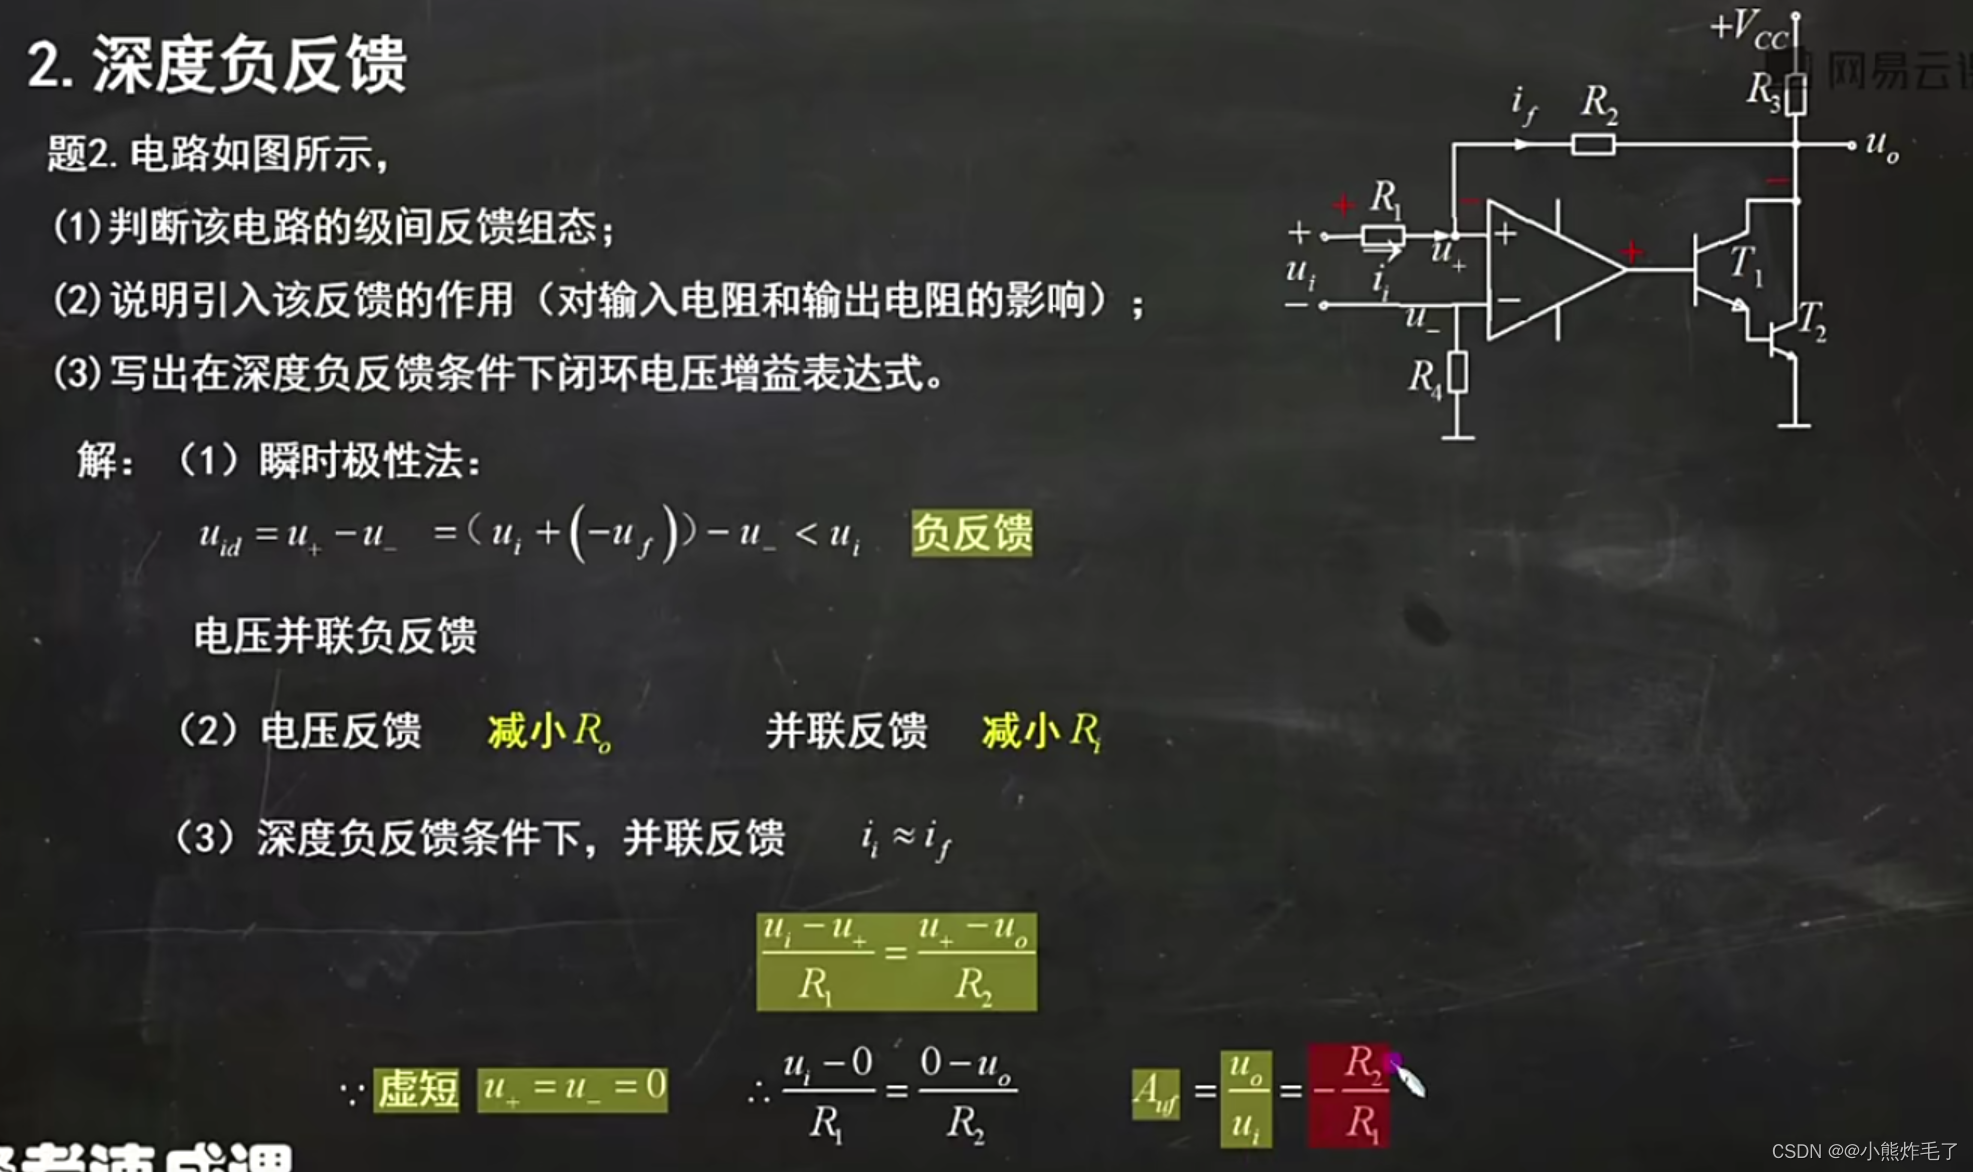 2. 深度负反馈
题2. 电路如图所示，
(1)判断该电路的级间反馈组态；
(2)说明引入该反馈的作用（对输入电阻和输出电阻的影响）；
(3)写出在深度负反馈条件下闭环电压增益表达式。
+V_CC
网易云
R_3
i_f R_2
u_o
+ R_1 − −
+ u_+ + + T_1
u_i i_i
− u_− − T_2
R_4
解：（1）瞬时极性法：
u_id = u_+ − u_− =（u_i + (−u_f)）− u_− < u_i 负反馈
电压并联负反馈
（2）电压反馈 减小 R_o 并联反馈 减小 R_i
（3）深度负反馈条件下，并联反馈 i_i ≈ i_f
(u_i − u_+)/R_1 = (u_+ − u_o)/R_2
∵ 虚短 u_+ = u_− = 0 ∴ (u_i − 0)/R_1 = (0 − u_o)/R_2 A_uf = u_o/u_i = − R_2/R_1
CSDN @@小熊炸毛了